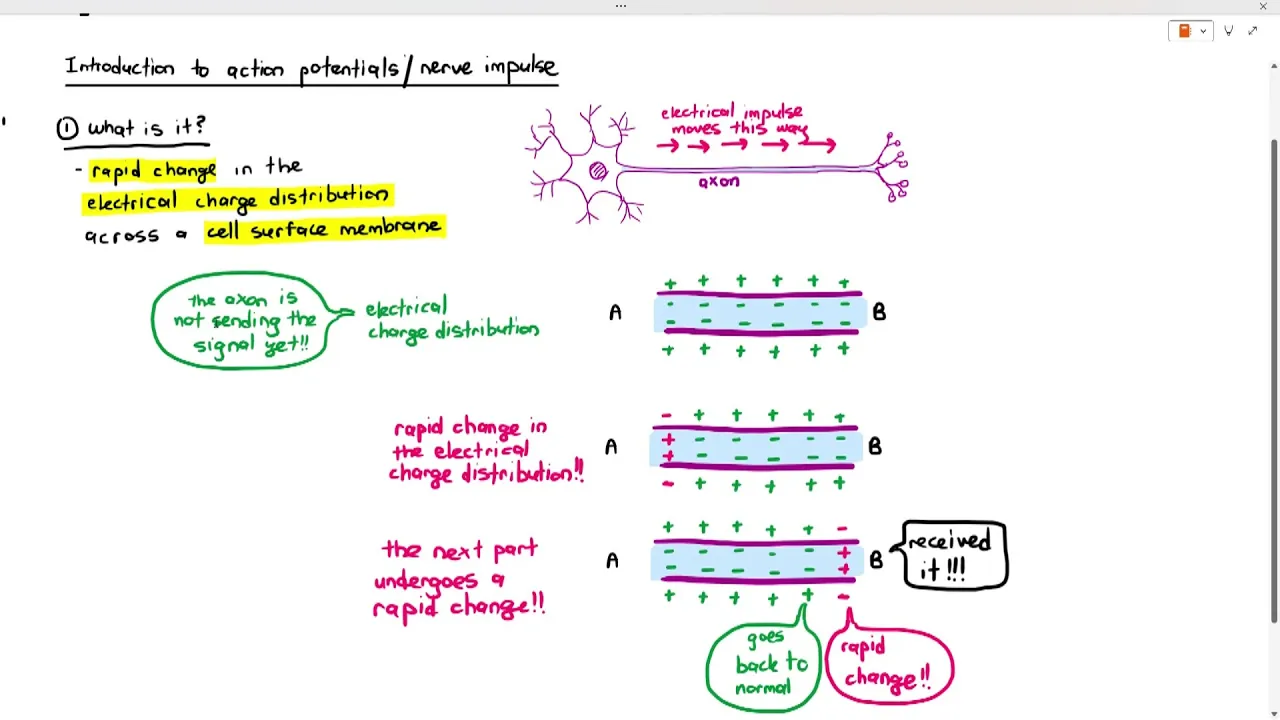 Introduction to action potentials/nerve impulse
① what is it?
- rapid change in the
electrical charge distribution
across a cell surface membrane
electrical impulse
moves this way
axon
the axon is
not sending the
signal yet!!
electrical
charge distribution
+ + + + + +
A - - - - - - B
- - - - - -
+ + + + + +
rapid change in
the electrical
charge distribution!!
- + + + + +
A + - - - - - B
+ - - - - -
- + + + + +
the next part
undergoes a
rapid change!!
+ + + + + -
A - - - - - + B
- - - - - +
+ + + + + -
received
it!!!
goes
back to
normal
rapid
change!!